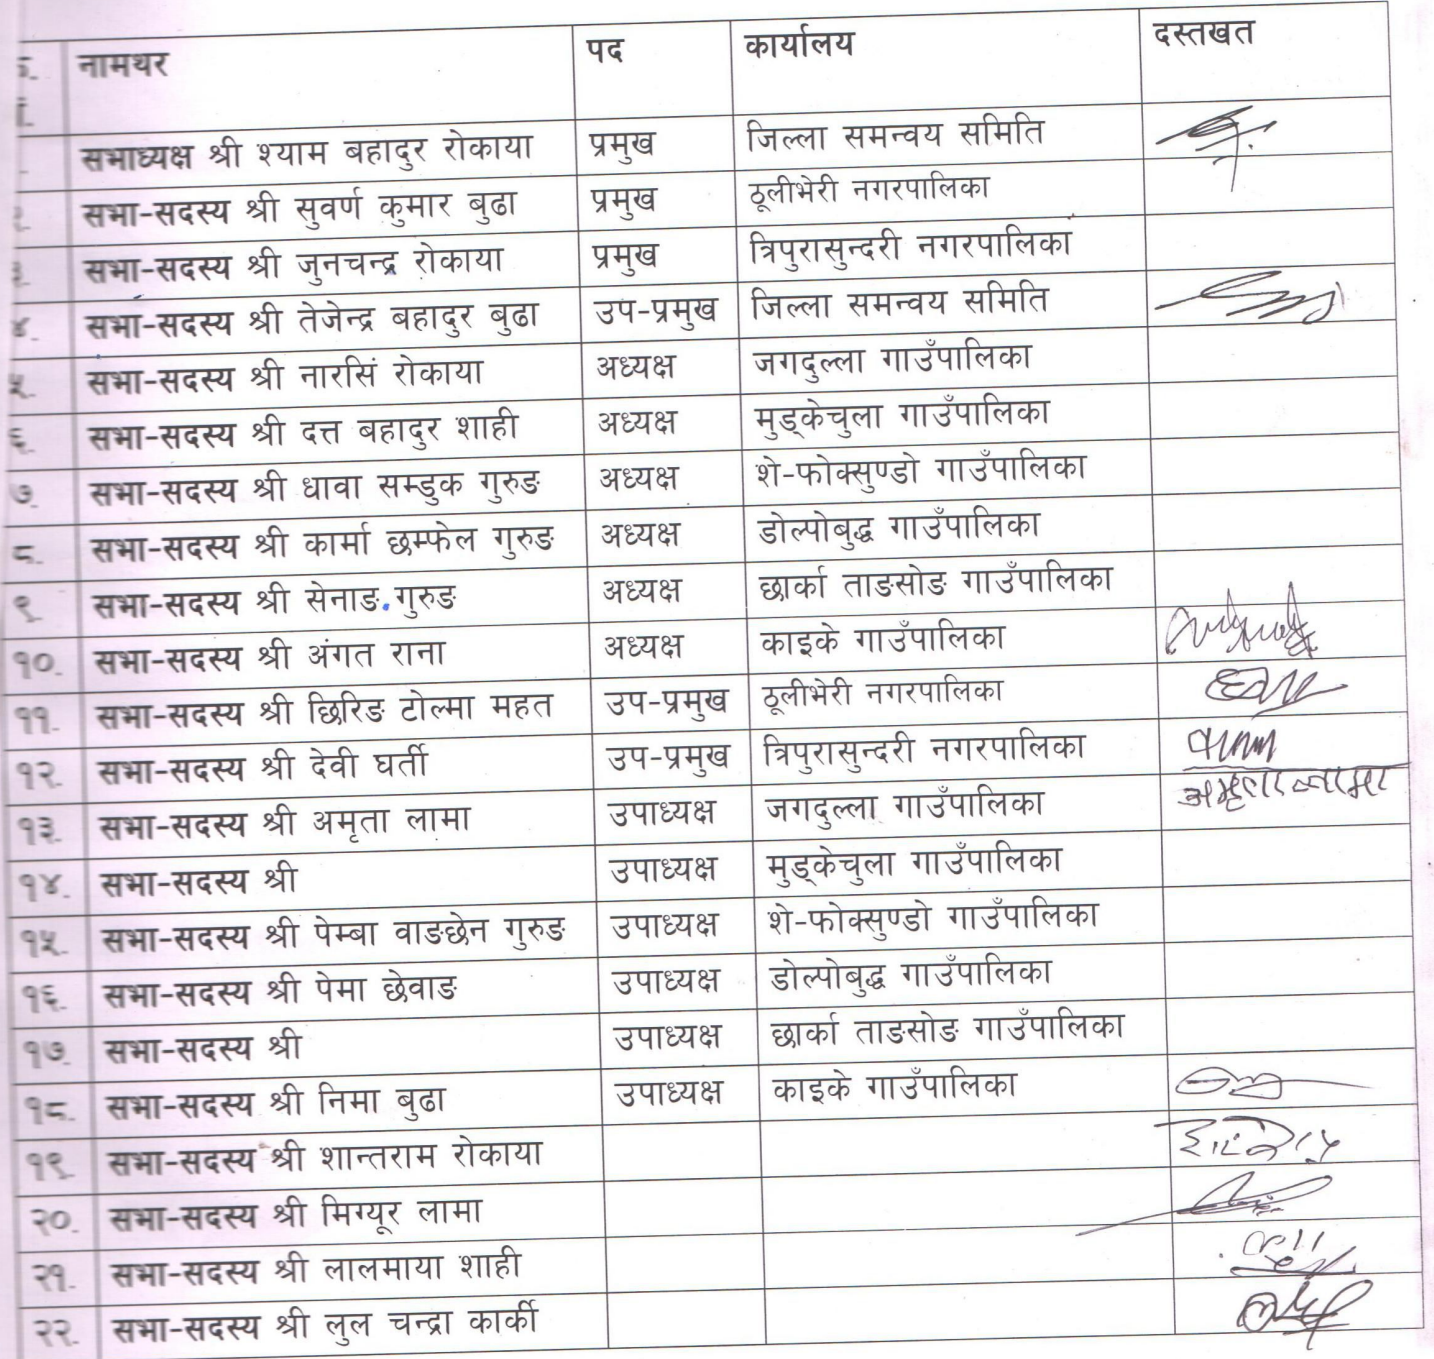 नामथर पद कार्यालय दस्तखत
सभाध्यक्ष श्री श्याम बहादुर रोकाया प्रमुख जिल्ला समन्वय समिति
२. सभा-सदस्य श्री सुवर्ण कुमार बुढा प्रमुख ठूलीभेरी नगरपालिका
३. सभा-सदस्य श्री जुनचन्द्र रोकाया प्रमुख त्रिपुरासुन्दरी नगरपालिका
४. सभा-सदस्य श्री तेजेन्द्र बहादुर बुढा उप-प्रमुख जिल्ला समन्वय समिति
५. सभा-सदस्य श्री नारसिं रोकाया अध्यक्ष जगदुल्ला गाउँपालिका
६. सभा-सदस्य श्री दत्त बहादुर शाही अध्यक्ष मुड्केचुला गाउँपालिका
७. सभा-सदस्य श्री धावा सम्डुक गुरुङ अध्यक्ष शे-फोक्सुण्डो गाउँपालिका
८. सभा-सदस्य श्री कार्मा छम्फेल गुरुङ अध्यक्ष डोल्पोबुद्ध गाउँपालिका
९. सभा-सदस्य श्री सेनाङ गुरुङ अध्यक्ष छार्का ताङसोङ गाउँपालिका
१०. सभा-सदस्य श्री अंगत राना अध्यक्ष काइके गाउँपालिका
११. सभा-सदस्य श्री छिरिङ टोल्मा महत उप-प्रमुख ठूलीभेरी नगरपालिका
१२. सभा-सदस्य श्री देवी घर्ती उप-प्रमुख त्रिपुरासुन्दरी नगरपालिका
१३. सभा-सदस्य श्री अमृता लामा उपाध्यक्ष जगदुल्ला गाउँपालिका अमृता लामा
१४. सभा-सदस्य श्री उपाध्यक्ष मुड्केचुला गाउँपालिका
१५. सभा-सदस्य श्री पेम्बा वाङछेन गुरुङ उपाध्यक्ष शे-फोक्सुण्डो गाउँपालिका
१६. सभा-सदस्य श्री पेमा छेवाङ उपाध्यक्ष डोल्पोबुद्ध गाउँपालिका
१७. सभा-सदस्य श्री उपाध्यक्ष छार्का ताङसोङ गाउँपालिका
१८. सभा-सदस्य श्री निमा बुढा उपाध्यक्ष काइके गाउँपालिका
१९. सभा-सदस्य श्री शान्तराम रोकाया
२०. सभा-सदस्य श्री मिग्यूर लामा
२१. सभा-सदस्य श्री लालमाया शाही
२२. सभा-सदस्य श्री लुल चन्द्रा कार्की